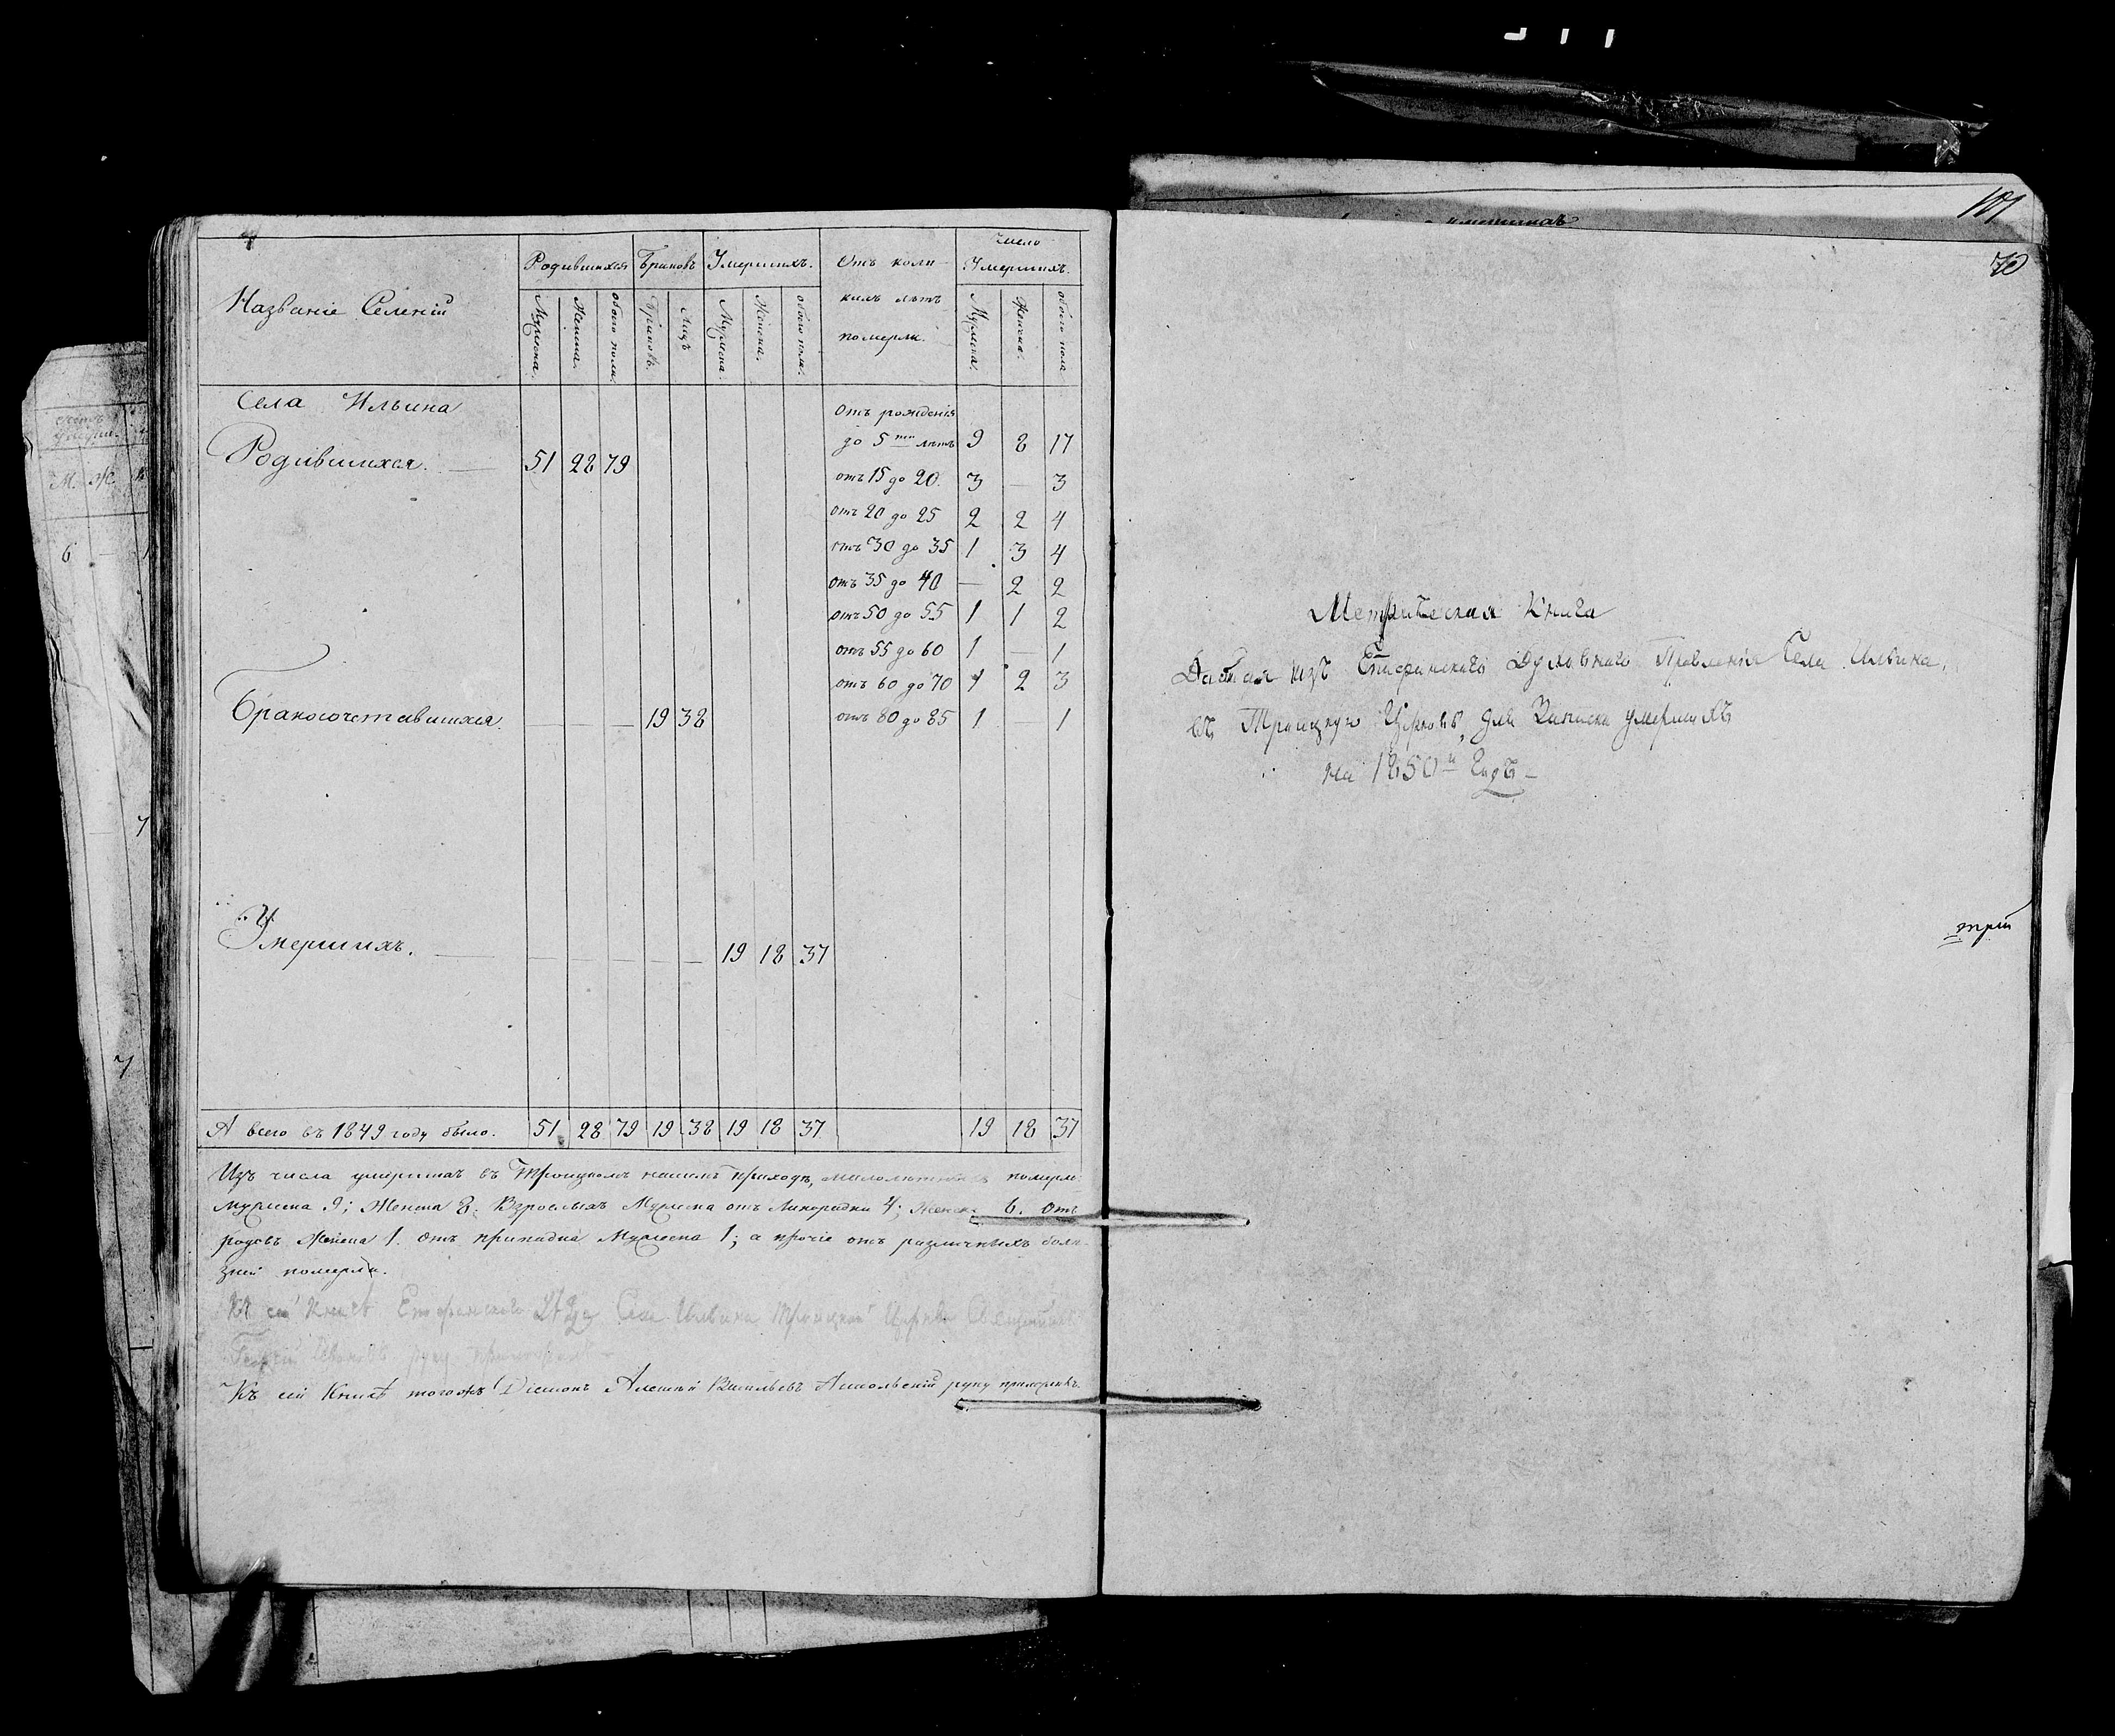 Названіе Селеній
Родившихся
Браковъ
Умершихъ.
Отъ коли-
кихъ лѣтъ
померли.
Число
Умершихъ.
Мужеска.
Женска.
обоего пола.
Браковъ.
Лицъ
Мужеска.
Женска.
обоего пола.
Мужеска.
Женска.
обоего пола
Села Ильина
Родившихся. 51 28 79
Бракосочетавшихся. — — — 19 38
Умершихъ. — — — — — — 19 18 37
Отъ рожденія
до 5ти лѣтъ 9 8 17
отъ 15 до 20. 3 — 3
отъ 20 до 25 2 2 4
отъ 30 до 35 1 3 4
отъ 35 до 40 — 2 2
отъ 50 до 55 1 1 2
отъ 55 до 60 1 — 1
отъ 60 до 70 1 2 3
отъ 80 до 85 1 1
А всего въ 1849 году было. 51 28 79 19 38 19 18 37 19 18 37
Изъ числа умершихъ въ Троицкомъ нашемъ приходѣ, малолѣтнихъ померло:
Мужеска 9; Женска 8. Взрослыхъ Мужеска отъ Лихорадки 4; Женска 6. Отъ
родовъ Женска 1. Отъ припадка Мужеска 1; а прочіе отъ различныхъ болѣ-
зней померли.
Къ сей Книгѣ Епифанскаго Села Ильина Троицкой Церкви Священникъ
Георгій Ивановъ руку приложилъ
Къ сей Книгѣ тогожъ Діаконъ Алексѣй Васильевъ руку приложилъ.
101
70
Метрическая Книга
Данная изъ Епифанскаго Духовнаго Правленія Села Ильина,
въ Троицкую Церковь, для Записки умершихъ
на 1850й Годъ —
три